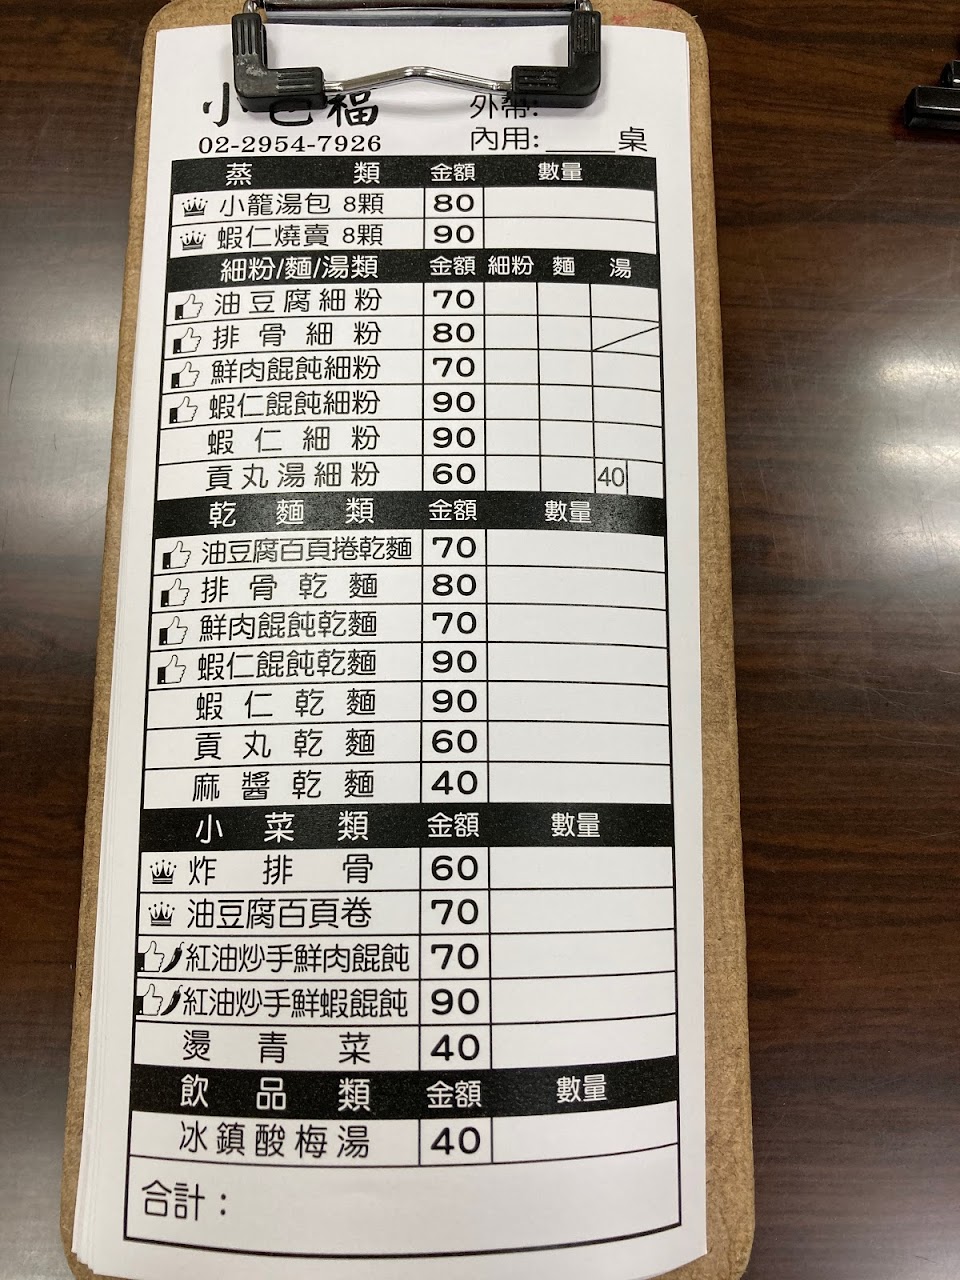 小包福
外帶:
02-2954-7926
內用:_____桌
蒸類 金額 數量
小籠湯包 8顆 80
蝦仁燒賣 8顆 90
細粉/麵/湯類 金額 細粉 麵 湯
油豆腐細粉 70
排骨細粉 80
鮮肉餛飩細粉 70
蝦仁餛飩細粉 90
蝦仁細粉 90
貢丸湯細粉 60 40
乾麵類 金額 數量
油豆腐百頁捲乾麵 70
排骨乾麵 80
鮮肉餛飩乾麵 70
蝦仁餛飩乾麵 90
蝦仁乾麵 90
貢丸乾麵 60
麻醬乾麵 40
小菜類 金額 數量
炸排骨 60
油豆腐百頁卷 70
紅油炒手鮮肉餛飩 70
紅油炒手鮮蝦餛飩 90
燙青菜 40
飲品類 金額 數量
冰鎮酸梅湯 40
合計：